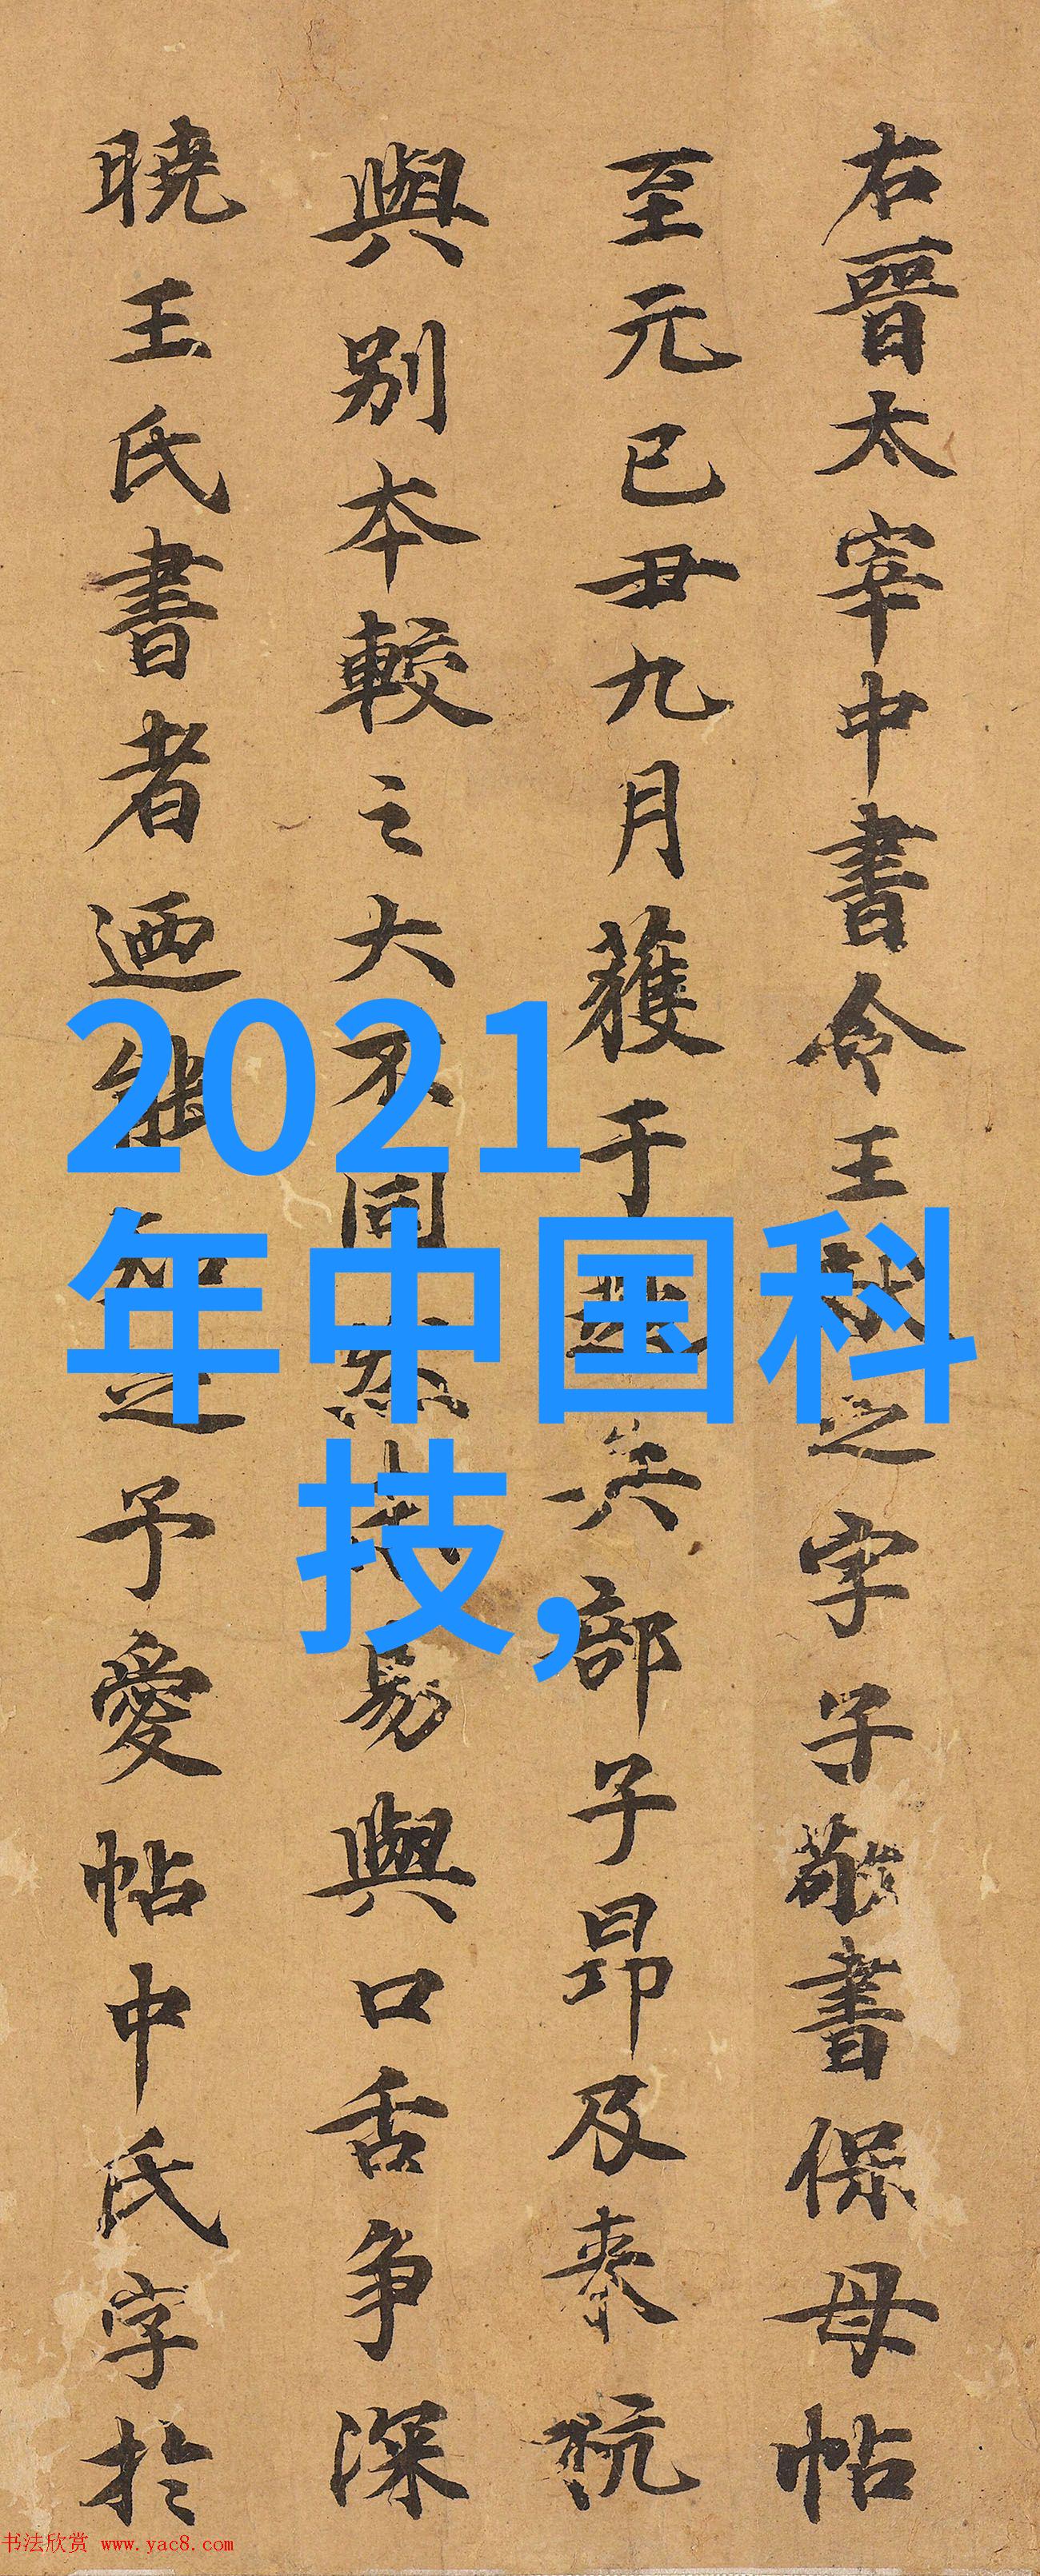 右晉太宰中書令王之字子敬書保母帖
至元己丑九月獲于兵部子昂及
與别本較之大不同然未易與口舌争深
曉王氏書者迺能知之予愛帖中氏字於
2021
年中国科
技,
书法欣赏 www.yac8.com